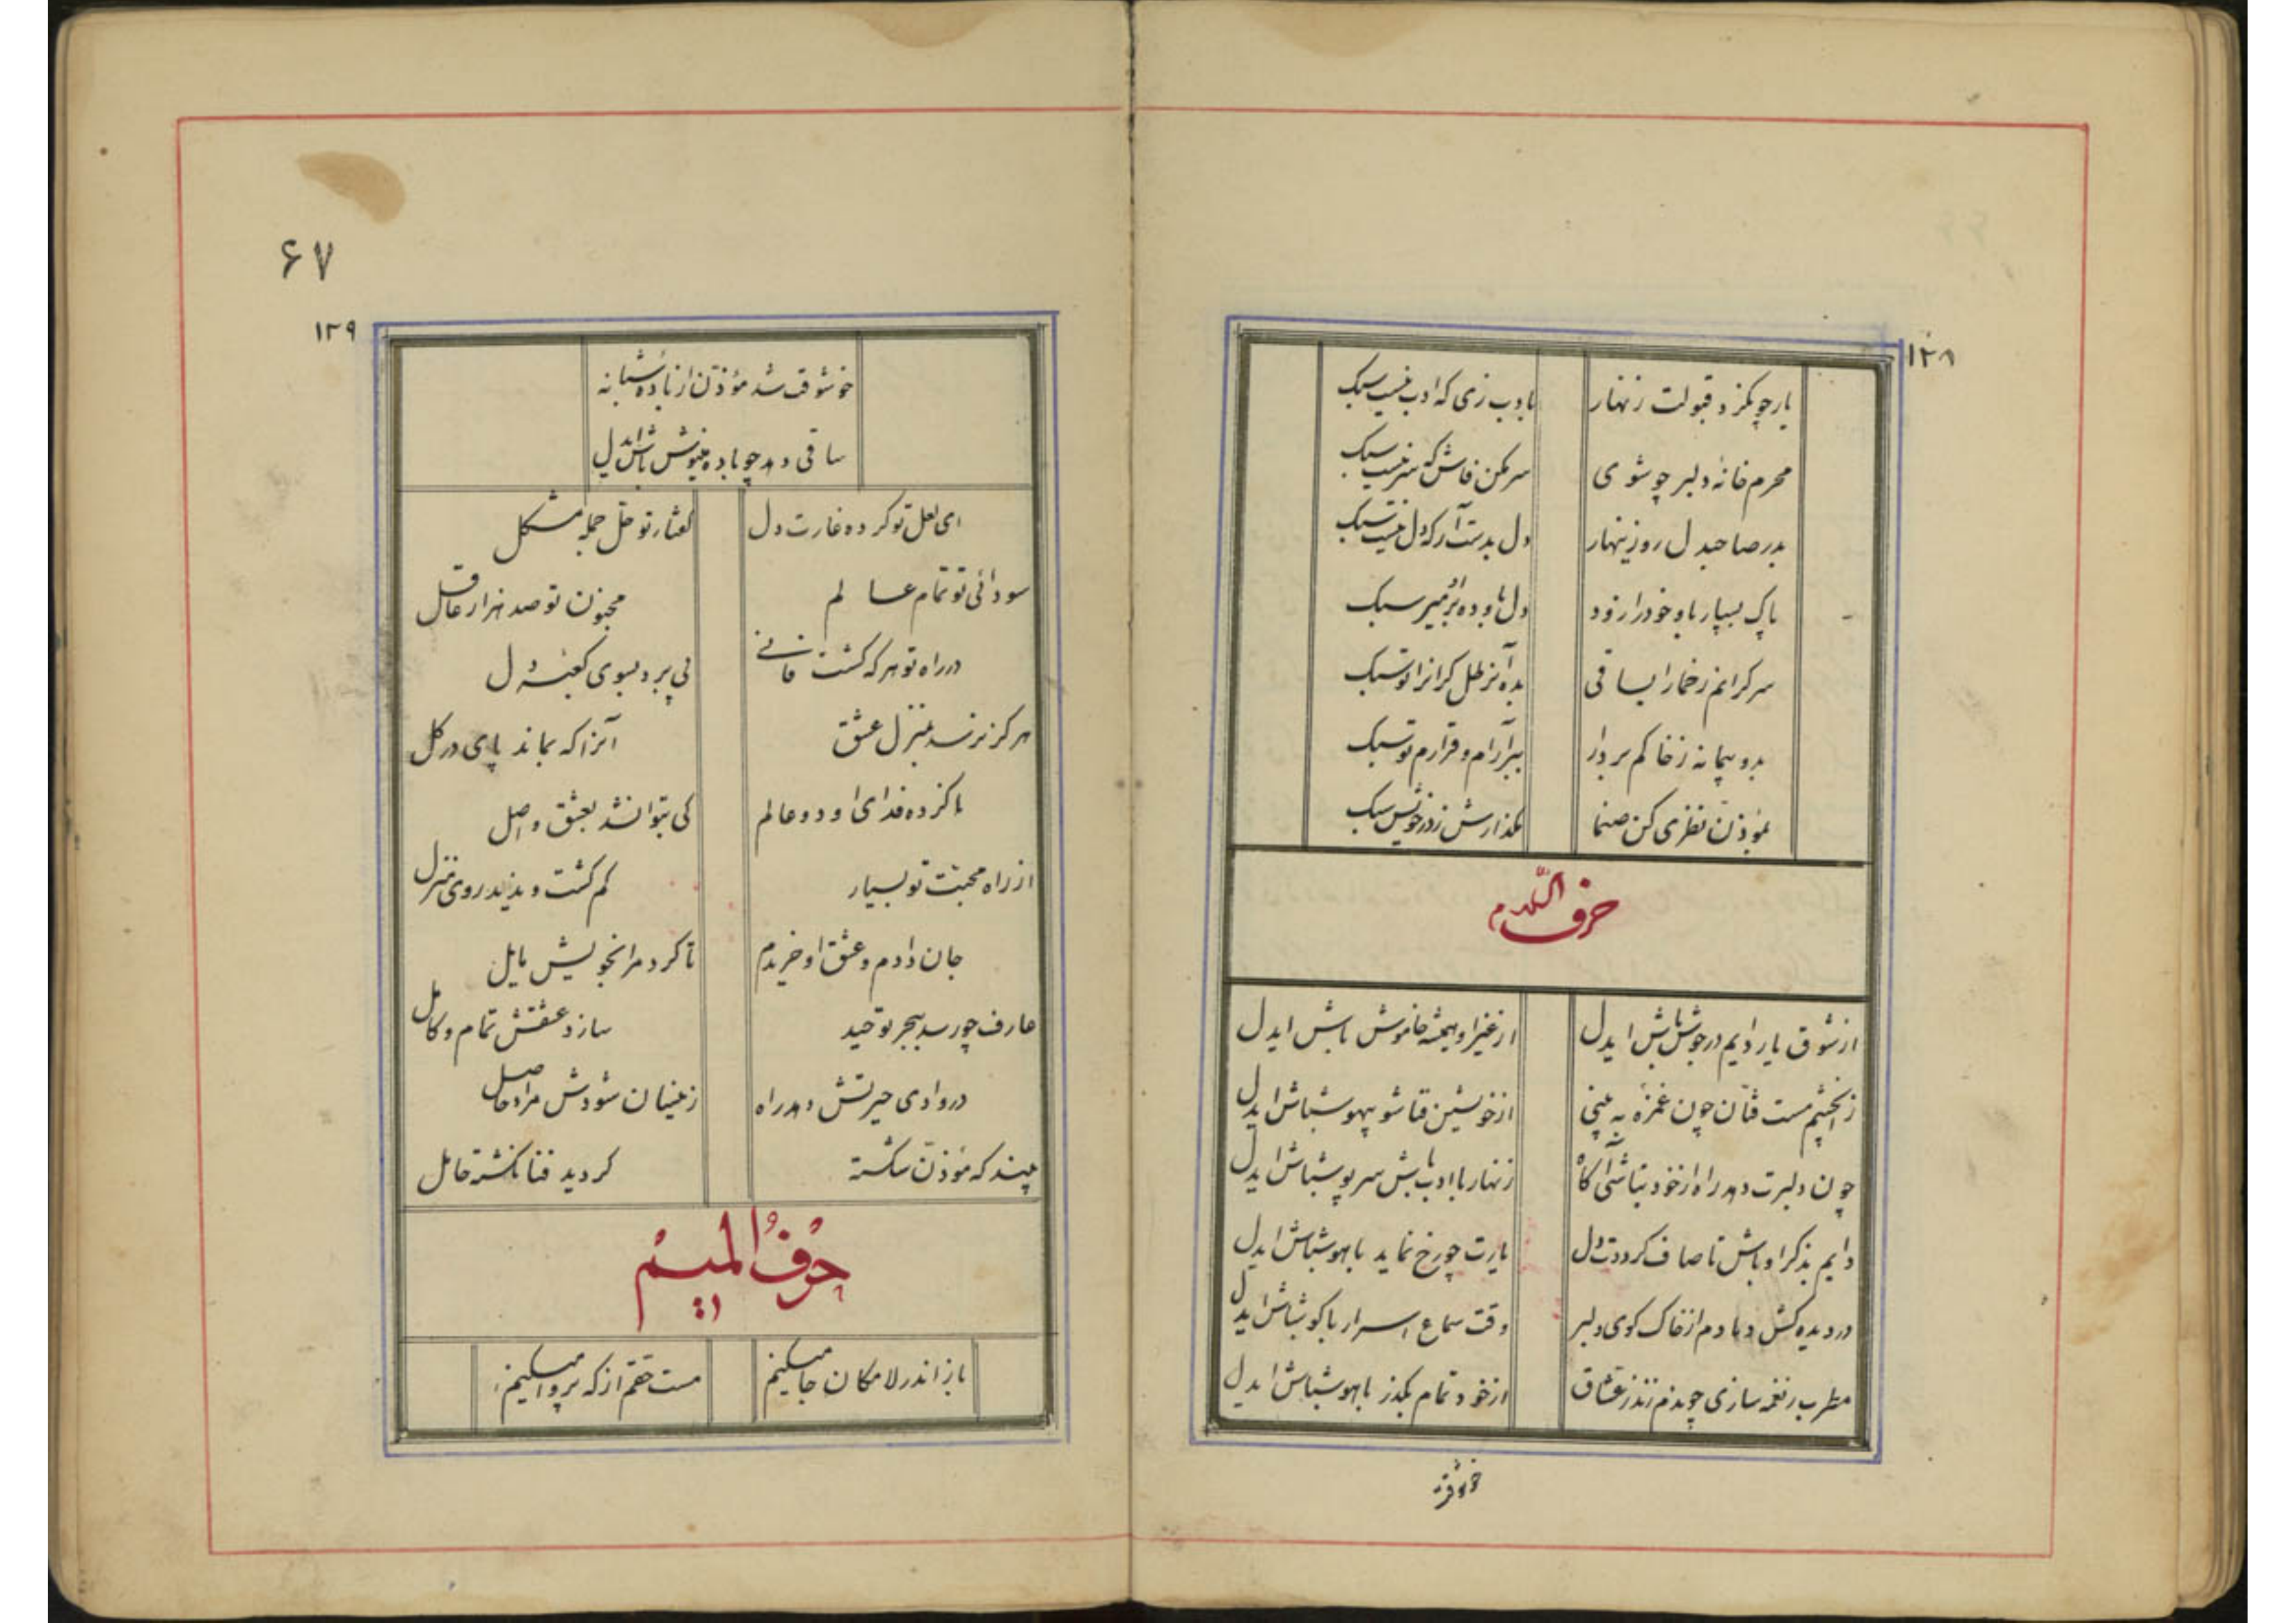 ۱۲۸
یار چو بگزد قبولت زنهار بادب زی که ادب نیست سبک
محرم خانه دلبر چو شوی سر مکن فاش که سر نیست سبک
بدر صاحبدل رو زینهار دل بدست آر که دل نیست سبک
پاک بسپار باو خود را زود دل باو ده بر میر سبک
سر کرانم ز خمار ایساقی بده آن رطل کرانرا تو سبک
بدو پیمانه ز خاکم بردار ببر آرام و قرارم تو سبک
بمؤذن نظری کن صنما مگذارش ز در خویش سبک
حرف اللام
از شوق یار دایم در جوش باش ایدل از غیر او همیشه خاموش باش ایدل
زانچشم مست فتان چون غمزه به بینی از خویشتن فنا شو بیهوشباش ایدل
چون دلبرت دهد راه از خود نباشی آکاه زنهار با ادب باش سرپوشباش ایدل
دایم بذکر او باش تا صاف کرددت دل یارت چو رخ نماید باهوشباش ایدل
در دیده کش دمادم از خاک کوی دلبر وقت سماع اسرار باکوشباش ایدل
مطرب ز نغمه سازی چو دم زند ز عشاق از خود تمام بگذر باهوشباش ایدل
خوشوقت
۶۷
۱۲۹
خوشوقت شد مؤذن از باده شبانه
ساقی دهد چو باده مینوش باش ایدل
ای لعل تو کرده غارت دل گفتار تو حل جمله مشکل
سودائی تو تمام عالم مجنون تو صد هزار عاقل
در راه تو هر که کشت فانی پی برد بسوی کعبه دل
هرکز نرسد بمنزل عشق آنرا که بماند پای در کل
ناکرده فدای او دو عالم کی بتواند شد بعشق واصل
از راه محبت تو بسیار کم کشت و ندید روی منزل
جان دادم و عشق او خریدم تا کرد مرا بخویش مایل
عارف چو رسد ببحر توحید سازد عشقش تمام و کامل
در وادی حیرتش دهد راه ز عینان شودش مراد حاصل
هر چند که مؤذن شکسته کردید فنا نکشته حایل
حرف المیم
باز اندر لامکان جا میکنیم مست حقم از که پروا میکنیم